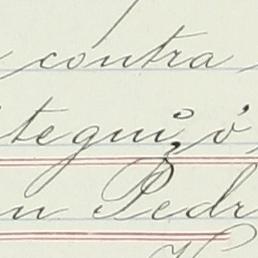 contra
tegui, ó
n Pedr